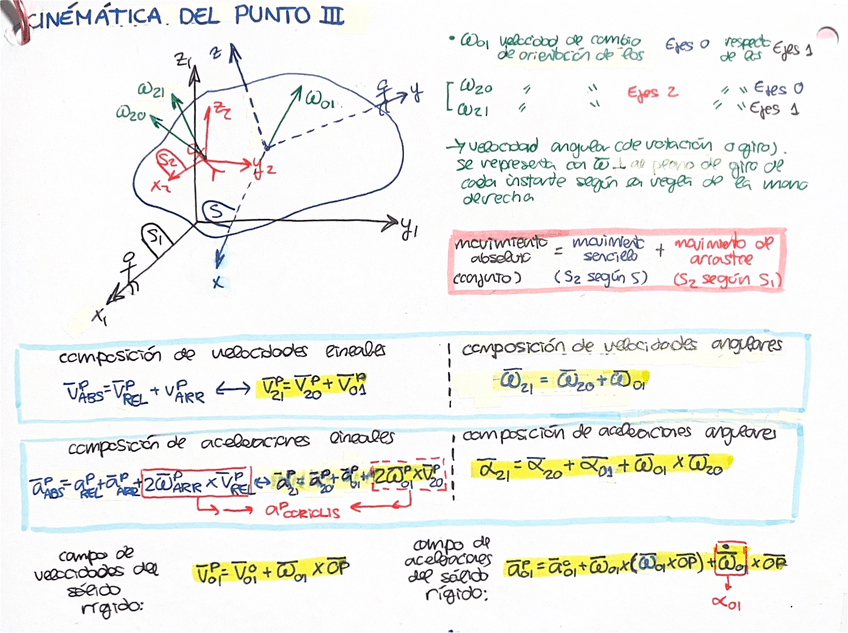 CINÉMÁTICA DEL PUNTO III
• ω01 velocidad de cambio de orientación de los Ejes 0 respecto de los Ejes 1
ω20 " " Ejes 2 " " Ejes 0
ω21 " " " " Ejes 1
→ velocidad angular (de rotación o giro).
se representa con ω̄ ⊥ al plano de giro de
cada instante según la regla de la mano
derecha
z1
z
ω21
ω20
z2
ω01
y
S2
x2
y2
S
S1
y1
x
x1
movimiento absoluto (conjunto) = movimiento sencillo (S2 según S) + movimiento de arrastre (S2 según S1)
composición de velocidades lineales
V̄ᴾABS = V̄ᴾREL + vᴾARR ↔ V̄ᴾ21 = V̄ᴾ20 + V̄ᴾ01
composición de velocidades angulares
ω̄21 = ω̄20 + ω̄01
composición de aceleraciones lineales
āᴾABS = aᴾREL + āᴾARR + 2ω̄ᴾARR × V̄ᴾREL ↔ āᴾ21 = āᴾ20 + āᴾ01 + 2ω̄ᴾ01 × V̄ᴾ20
aᴾCORIOLIS
composición de aceleraciones angulares
ᾱ21 = ᾱ20 + ᾱ01 + ω̄01 × ω̄20
campo de
velocidades del
sólido
rígido:
V̄ᴾ01 = V̄⁰01 + ω̄01 × O̅P̅
campo de
aceleraciones
del sólido
rígido:
āᴾ01 = ā⁰01 + ω̄01 × (ω̄01 × O̅P̅) + ω̄̇01 × O̅P̅
α01